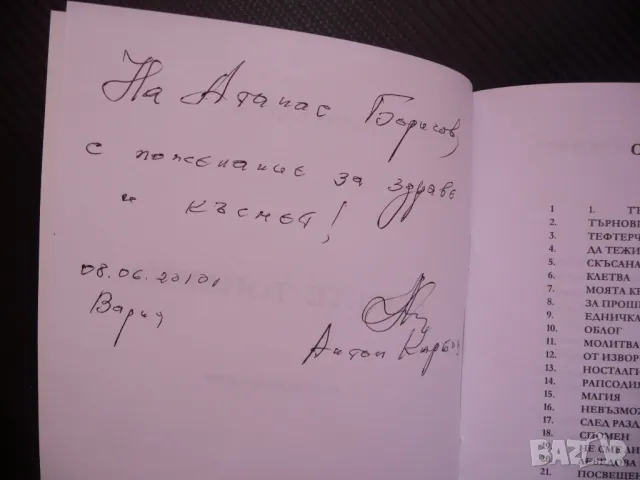 На Атанас Борисов,
с пожелание за здраве
и късмет!
08.06.2010
Варна
Антон
1 1. ТЪ
2. ТЪРНОВГ
3. ТЕФТЕРЧ
4. ДА ТЕЖИ
5. СКЪСАНА
6. КЛЕТВА
7. МОЯТА КР
8. ЗА ПРОШ
9. ЕДНИЧКА
10. ОБЛОГ
11. МОЛИТВА
12. ОТ ИЗВОР
13. НОСТАЛГИ
14. РАПСОДИЯ
15. МАГИЯ
16. НЕВЪЗМОЖ
17. СЛЕД РАЗД
18. СПОМЕН
19. НЕ СМЕ ЛИ
20. ЛЕБЕДОВА
21. ПОСВЕЩЕН
BAZAR